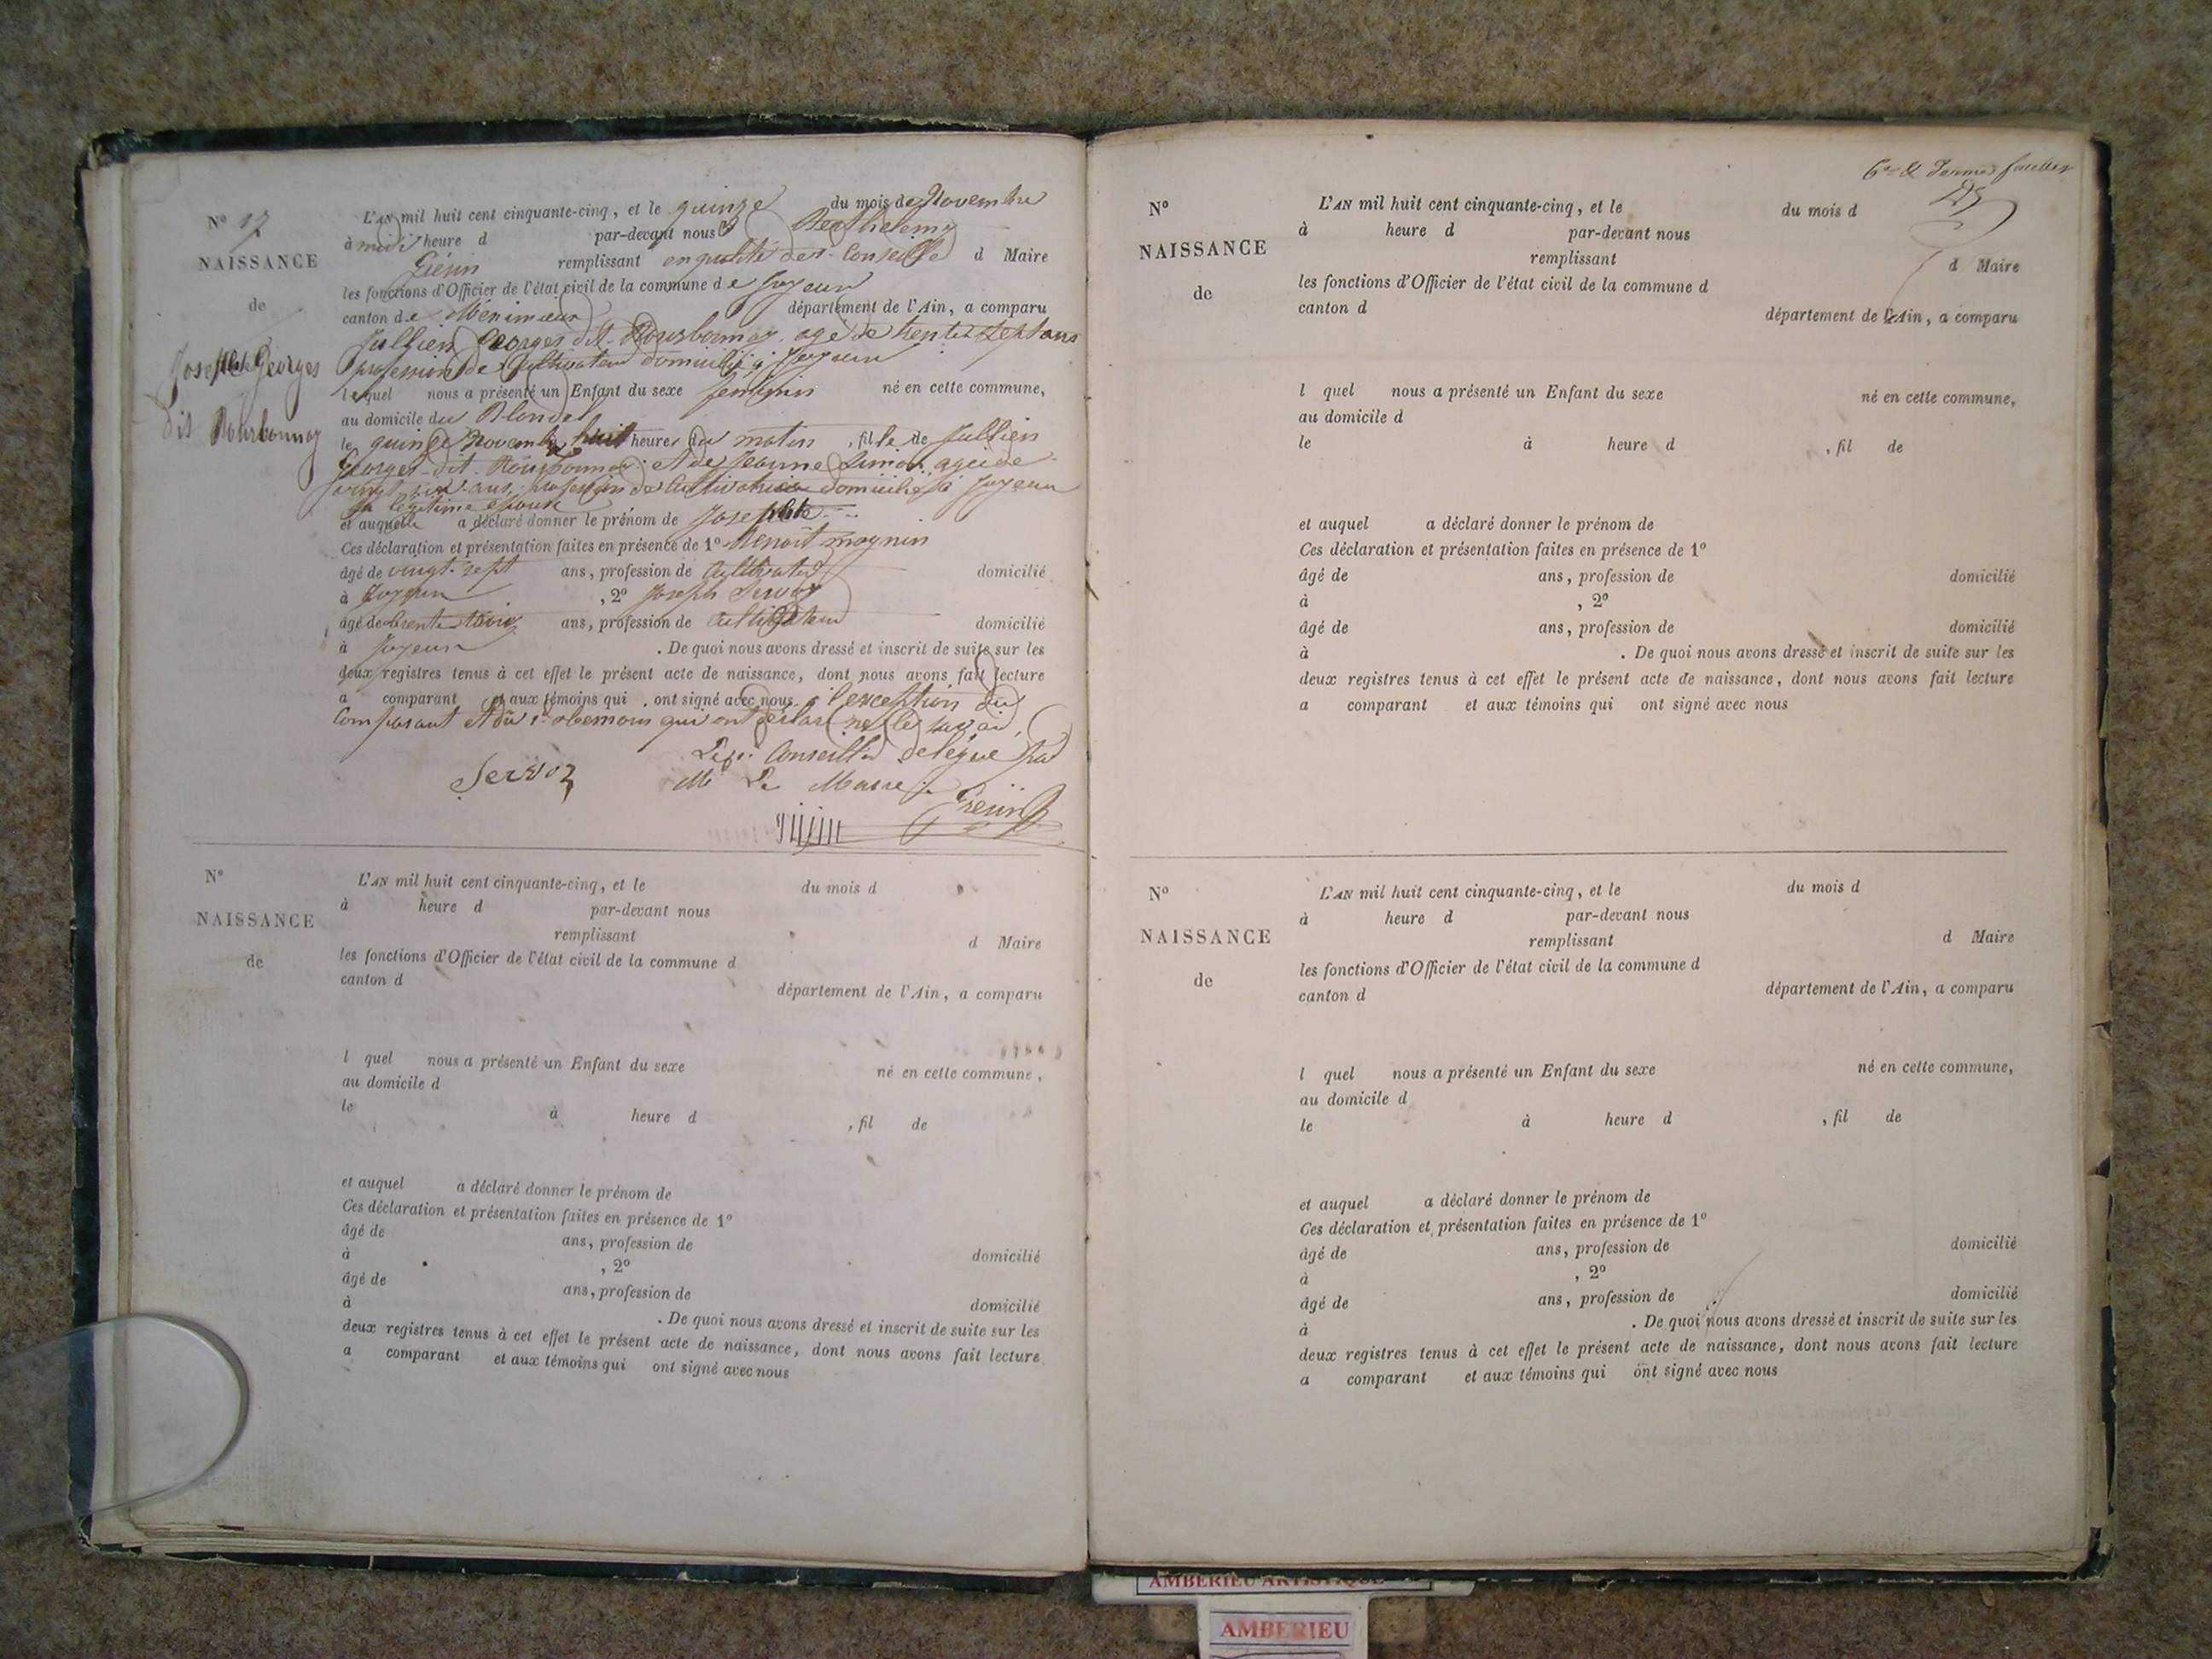 N° 17
NAISSANCE
de
Josephte Georges
dit Bourbonnay
L'AN mil huit cent cinquante-cinq, et le quinze du mois de Novembre
à midi heure d par-devant nous Berthelemy
remplissant en qualité de Conseille d Maire
les fonctions d'Officier de l'état civil de la commune de Joyeux
canton de département de l'Ain, a comparu
Jullien Georges dit Bourbonnay age de trente sept ans
profession de Cultivateur domicilié à Joyeux
lequel nous a présenté un Enfant du sexe feminin né en cette commune,
au domicile du Blondel
le quinze Novembre huit heures du matin , fille de Jullien
Georges dit Bourbonnay et de Jeanne agée de
ans profession de Cultivatrice domiciliée à Joyeux
sa légitime épouse
et auquelle a déclaré donner le prénom de Josephte
Ces déclaration et présentation faites en présence de 1° Benoît moynin
âgé de vingt-sept ans, profession de Cultivateur domicilié
à Joyeux , 2° Joseph Servoz
âgé de trente trois ans, profession de Cultivateur domicilié
à Joyeux . De quoi nous avons dressé et inscrit de suite sur les
deux registres tenus à cet effet le présent acte de naissance, dont nous avons fait lecture
a comparant et aux témoins qui ont signé avec nous à l'exception du
Comparant et du 1er témoin qui ont déclaré ne le savoir,
Le Conseiller délégué par
Servoz Mr Le Maire
N°
NAISSANCE
de
L'AN mil huit cent cinquante-cinq, et le du mois d
à heure d par-devant nous
remplissant d Maire
les fonctions d'Officier de l'état civil de la commune d
canton d département de l'Ain, a comparu
l quel nous a présenté un Enfant du sexe né en cette commune,
au domicile d
le à heure d , fil de
et auquel a déclaré donner le prénom de
Ces déclaration et présentation faites en présence de 1°
âgé de ans, profession de domicilié
à , 2°
âgé de ans, profession de domicilié
à . De quoi nous avons dressé et inscrit de suite sur les
deux registres tenus à cet effet le présent acte de naissance, dont nous avons fait lecture
a comparant et aux témoins qui ont signé avec nous
25
N°
NAISSANCE
de
L'AN mil huit cent cinquante-cinq, et le du mois d
à heure d par-devant nous
remplissant d Maire
les fonctions d'Officier de l'état civil de la commune d
canton d département de l'Ain, a comparu
l quel nous a présenté un Enfant du sexe né en cette commune,
au domicile d
le à heure d , fil de
et auquel a déclaré donner le prénom de
Ces déclaration et présentation faites en présence de 1°
âgé de ans, profession de domicilié
à , 2°
âgé de ans, profession de domicilié
à . De quoi nous avons dressé et inscrit de suite sur les
deux registres tenus à cet effet le présent acte de naissance, dont nous avons fait lecture
a comparant et aux témoins qui ont signé avec nous
N°
NAISSANCE
de
L'AN mil huit cent cinquante-cinq, et le du mois d
à heure d par-devant nous
remplissant d Maire
les fonctions d'Officier de l'état civil de la commune d
canton d département de l'Ain, a comparu
l quel nous a présenté un Enfant du sexe né en cette commune,
au domicile d
le à heure d , fil de
et auquel a déclaré donner le prénom de
Ces déclaration et présentation faites en présence de 1°
âgé de ans, profession de domicilié
à , 2°
âgé de ans, profession de domicilié
à . De quoi nous avons dressé et inscrit de suite sur les
deux registres tenus à cet effet le présent acte de naissance, dont nous avons fait lecture
a comparant et aux témoins qui ont signé avec nous
AMBERIEU ARTISTIQUE
AMBERIEU